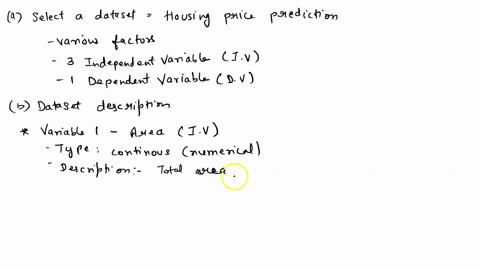 (a) Select a dataset = Housing price prediction
- various factors
- 3 Independent Variable (I.V)
- 1 Dependent Variable (D.V)
(b) Dataset description
* Variable 1 - Area (I.V)
- Type: continous (numerical)
- Description:- Total area.